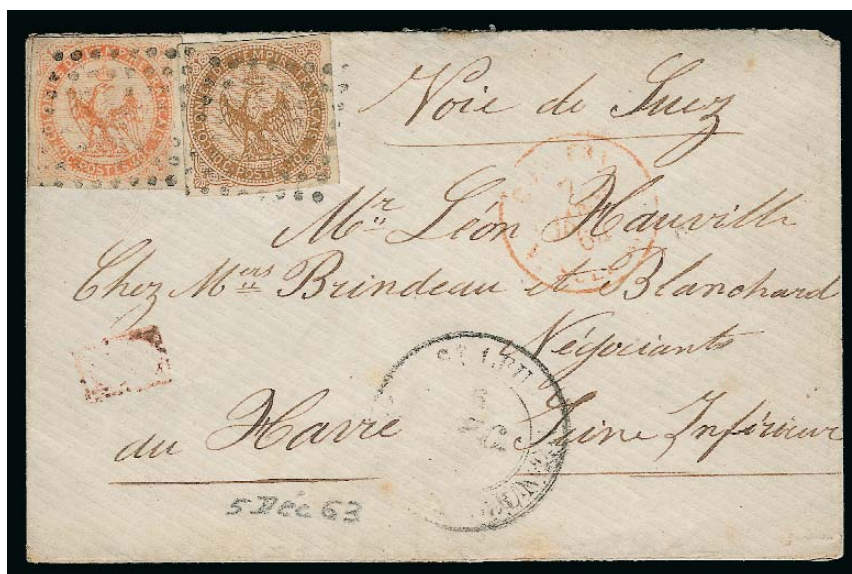 Voie de Suez
Mr Léon Hauville
Chez Mers Brindeau et Blanchard
Négociants
au Havre Seine Inférieure
ST LEU
5 Déc 63